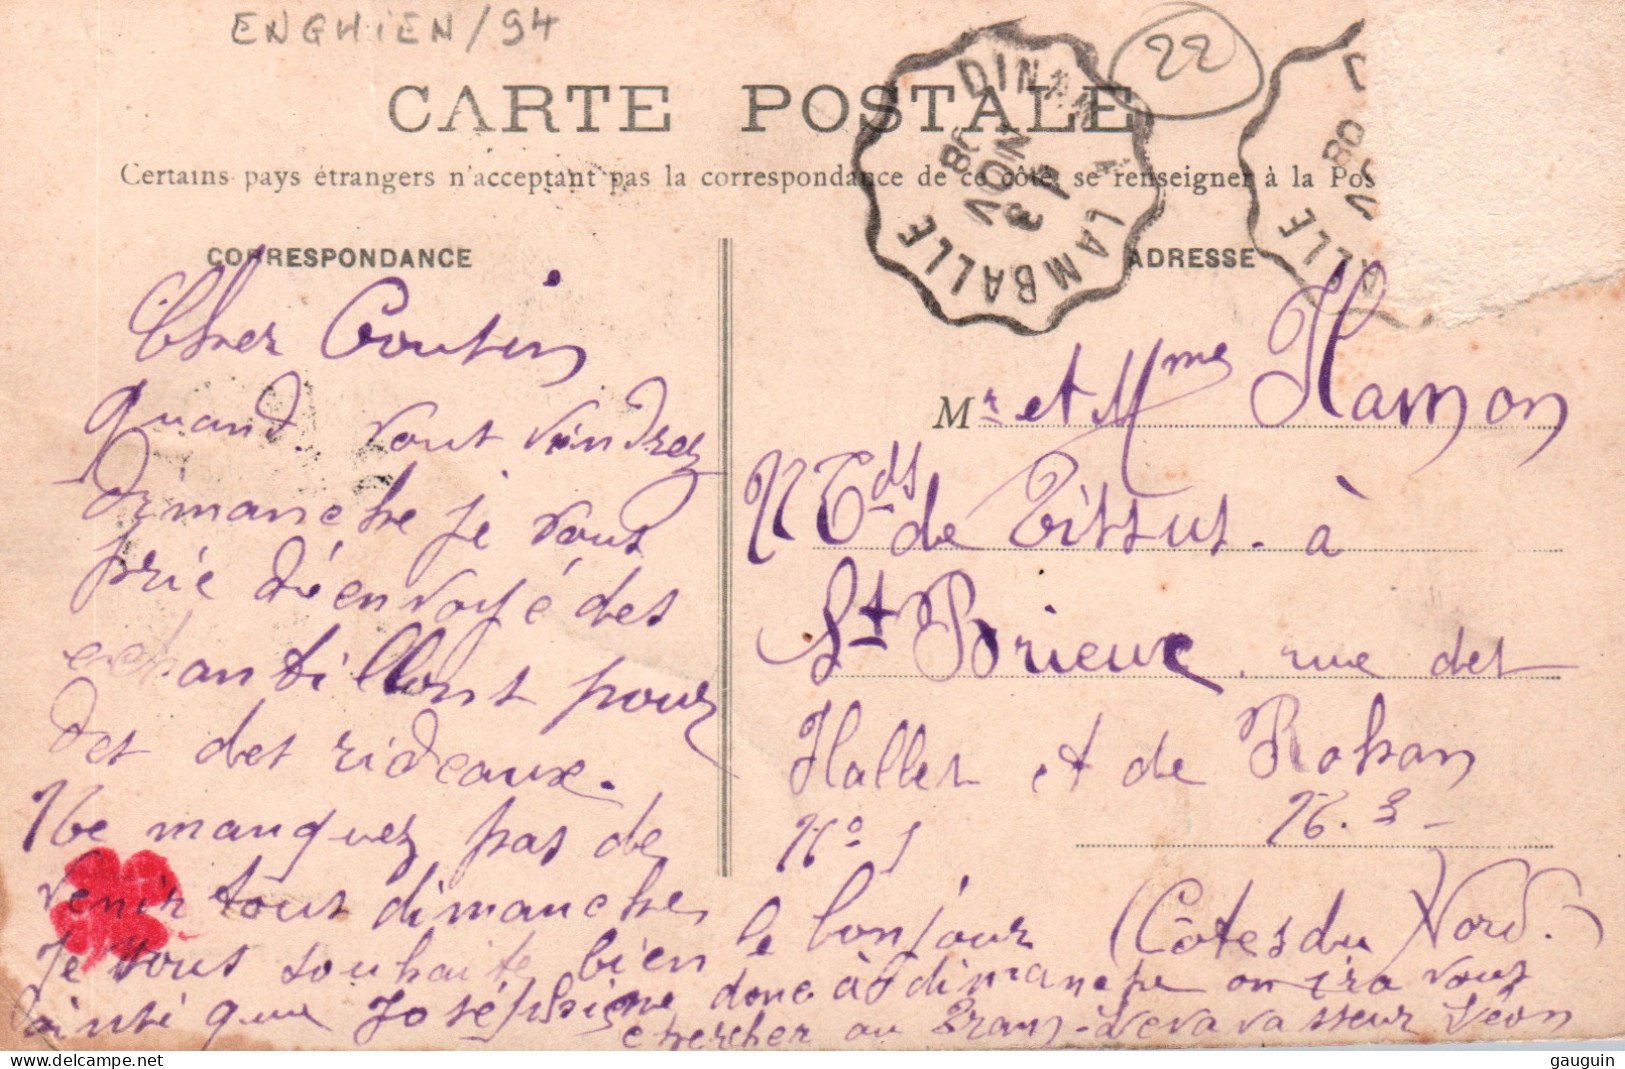 ENGHIEN/94
22
CARTE POSTALE
Certains pays étrangers n'acceptant pas la correspondance de ce côté, se renseigner à la Pos
CORRESPONDANCE
ADRESSE
DINAN A LAMBALLE
3 NOV 08
ALLE
08
Cher Cousin
quand vous viendrez
dimanche je vous
prie d'envoyé des
echantillons pour
des des rideaux.
Ne manquez pas de
venir tous dimanche
Je vous souhaite bien le bonjour
ainsi que Joséphine donc à dimanche on ira vous
chercher au Tram - Levavasseur Léon
Mr et Mme Hamon
Mds de Tissus à
St Brieuc rue des
Halles et de Rohan
No 1
N. 3
(Côtes du Nord.)
gauguin